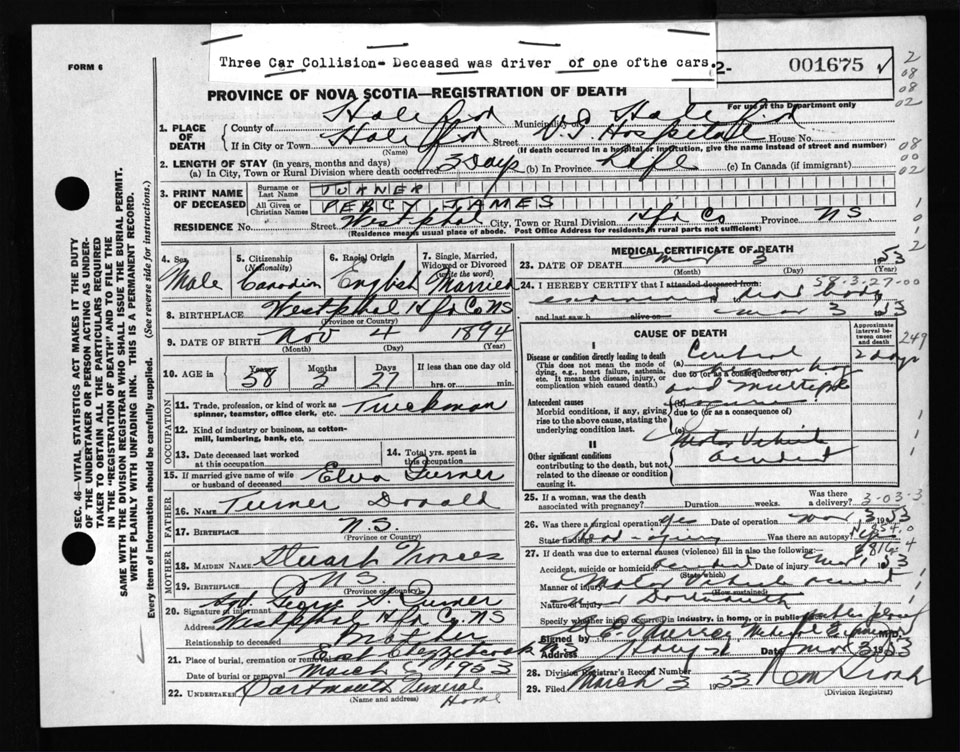 Three Car Collision- Deceased was driver of one ofthe cars.
FORM 6
2- 001675
2
08
02
PROVINCE OF NOVA SCOTIA—REGISTRATION OF DEATH
For use of the Department only
1. PLACE OF DEATH
County of Halifax Municipality of Halifax
If in City or Town Halifax Street V.G. Hospital House No.
(Name) (If death occurred in a hospital or institution, give the name instead of street and number)
2. LENGTH OF STAY (in years, months and days)
(a) In City, Town or Rural Division where death occurred 3 days (b) In Province Life (c) In Canada (if immigrant)
08
00
02
3. PRINT NAME OF DECEASED
Surname or Last Name TURNER
All Given or Christian Names PERCY JAMES
RESIDENCE No. Street Westphal City, Town or Rural Division Hfx Co Province NS
(Residence means usual place of abode. Post Office Address for residents in rural parts not sufficient)
4. Sex
Male
5. Citizenship (Nationality)
Canadian
6. Racial Origin
English
7. Single, Married, Widowed or Divorced (write the word)
Married
8. BIRTHPLACE Westphal Hfx Co NS
(Province or Country)
9. DATE OF BIRTH Nov 4 1894
(Month) (Day) (Year)
10. AGE in Years 58 Months 3 Days 27
If less than one day old
hrs. or min.
OCCUPATION
11. Trade, profession, or kind of work as spinner, teamster, office clerk, etc. Truckman
12. Kind of industry or business, as cotton-mill, lumbering, bank, etc.
13. Date deceased last worked at this occupation
14. Total yrs. spent in this occupation
15. If married give name of wife or husband of deceased Elva Turner
FATHER
16. NAME Turner Donald
17. BIRTHPLACE N.S.
(Province or Country)
MOTHER
18. MAIDEN NAME Stuart Frances
19. BIRTHPLACE N.S.
(Province or Country)
20. Signature of informant Turner
Address Westphal Hfx Co. NS
Relationship to deceased Brother
21. Place of burial, cremation or removal East Chezzetcook NS
Date of burial or removal March 1953
22. UNDERTAKER Dartmouth Funeral Home
(Name and address)
MEDICAL CERTIFICATE OF DEATH
23. DATE OF DEATH Mar 3 1953
(Month) (Day) (Year)
24. I HEREBY CERTIFY that I attended deceased from:
58-3-27-00
examined dead body
and last saw h alive on Mar 3 1953
CAUSE OF DEATH
Approximate interval between onset and death
249
I
Disease or condition directly leading to death
(This does not mean the mode of dying, e.g., heart failure, asthenia, etc. It means the disease, injury, or complication which caused death.)
(a)
2 days
due to (or as a consequence of)
and multiple
Antecedent causes
Morbid conditions, if any, giving rise to the above cause, stating the underlying condition last.
due to (or as a consequence of)
(c)
II
Other significant conditions
contributing to the death, but not related to the disease or condition causing it.
Motor Vehicle
accident
25. If a woman, was the death associated with pregnancy? Duration weeks. Was there a delivery?
3-03-3
26. Was there a surgical operation? Yes Date of operation Mar 3 1953
State findings Head injury Was there an autopsy?
27. If death was due to external causes (violence) fill in also the following:
Accident, suicide or homicide? Accident Date of injury Mar 1 1953
(State which)
Manner of injury Motor vehicle accident
(How sustained)
Nature of injury Dartmouth
Specify whether injury occurred in industry, in home, or in public place
Signed by M.D.
Address Date Mar 3 1953
28. Division Registrar's Record Number
29. Filed March 3 1953
(Division Registrar)
SEC. 46—VITAL STATISTICS ACT MAKES IT THE DUTY
OF THE UNDERTAKER OR PERSON ACTING AS UNDER-
TAKER TO OBTAIN ALL THE PARTICULARS REQUIRED
IN THE "REGISTRATION OF DEATH" AND TO FILE THE
SAME WITH THE DIVISION REGISTRAR WHO SHALL ISSUE THE BURIAL PERMIT.
WRITE PLAINLY WITH UNFADING INK. THIS IS A PERMANENT RECORD.
Every item of information should be carefully supplied. (See reverse side for instructions.)